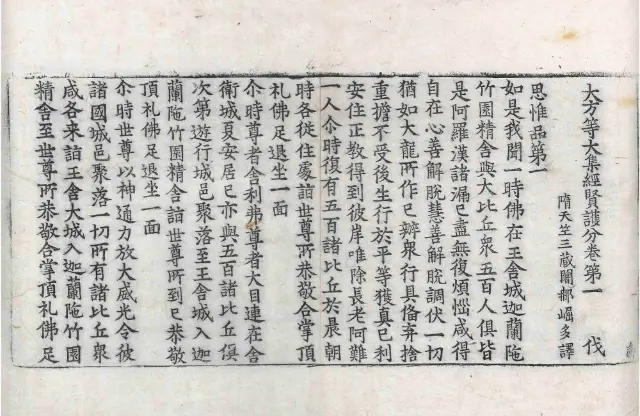 大方等大集經賢護分卷第一 伐
隋天竺三藏闍那崛多譯
思惟品第一
如是我聞一時佛在王舍城迦蘭陁
竹園精舍與大比丘衆五百人俱皆
是阿羅漢諸漏已盡無復煩惱咸得
自在心善解脫慧善解脫調伏一切
猶如大龍所作已辦衆行具俻弃捨
重擔不受後生行於平等獲真己利
安住正教得到彼岸唯除長老阿難
一人尒時復有五百諸比丘於晨朝
時各從住處詣世尊所恭敬合掌頂
礼佛足退坐一面
尒時尊者舍利弗尊者大目連在舍
衛城夏安居已亦與五百諸比丘俱
次第遊行城邑聚落至王舍城入迦
蘭陁竹園精舍詣世尊所到已恭敬
頂礼佛足退坐一面
尒時世尊以神通力放大威光令彼
諸國城邑聚落一切所有諸比丘衆
咸各来詣王舍大城入迦蘭陁竹園
精舍至世尊所恭敬合掌頂礼佛足